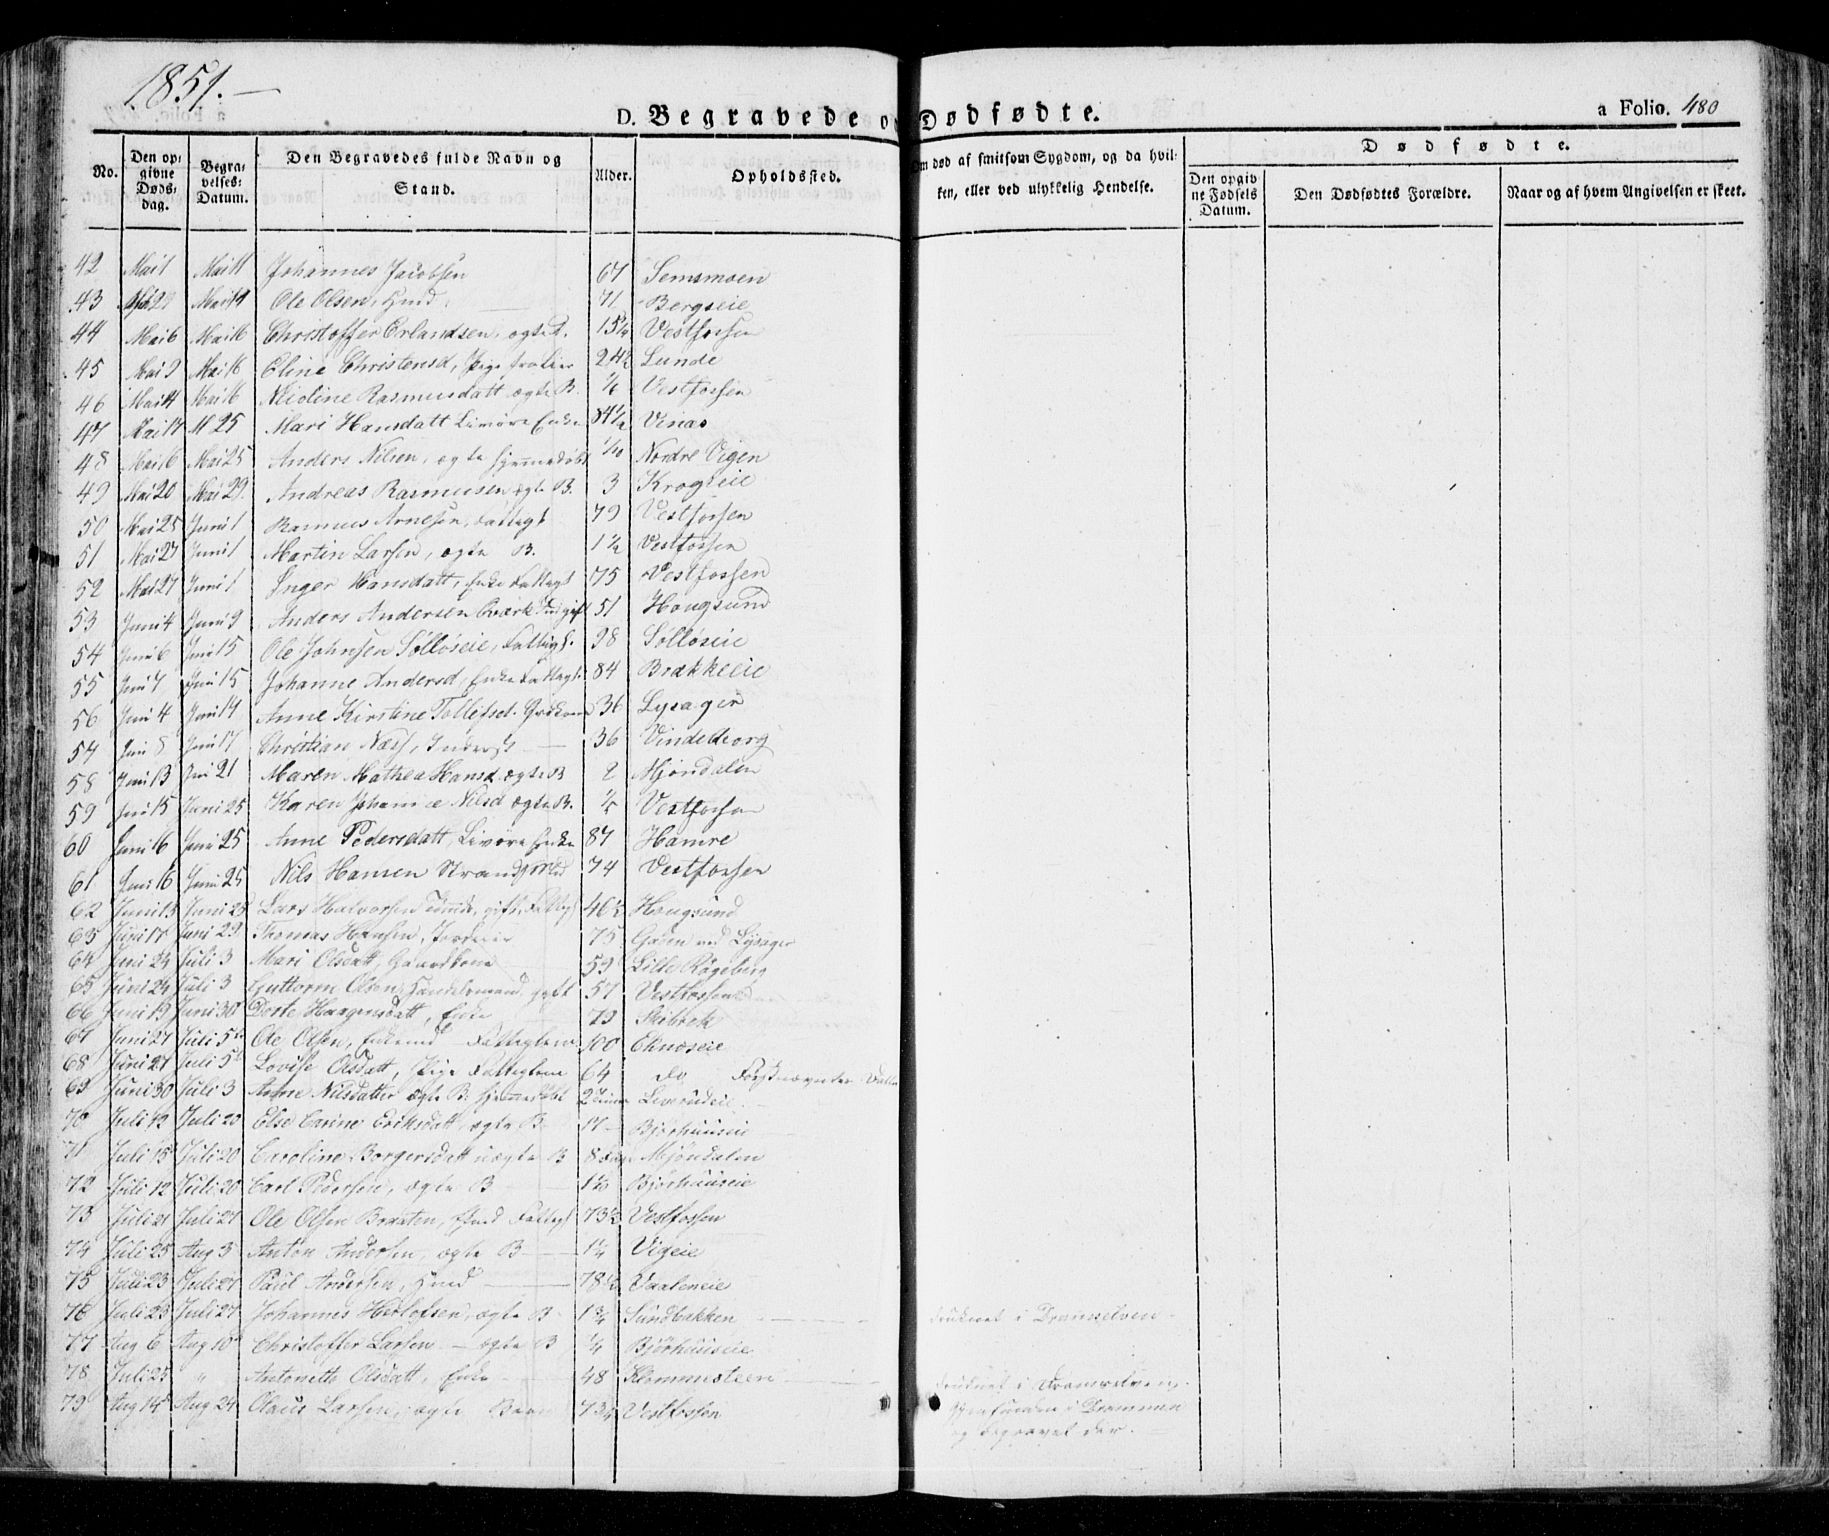 1851.
D. Begravede o Dødfødte.
a Folio. 480
No.
Den opgivne Døds-dag.
Begravelses-Datum.
Den Begravedes fulde Navn og Stand.
Alder.
Opholdssted.
Om død af smitsom Sygdom, og da hvilken, eller ved ulykkelig Hendelse.
Dødfødte.
Den opgivne Fødsels Datum.
Den Dødfødtes Forældre.
Naar og af hvem Angivelsen er skeet.
42 Mai 1 Mai 11 Johannes Jacobsen 67 Semsmoen
43 Mai Ole Olsen, 71 Bergseie
44 Mai 6 Mai 16 Christoffer Erlandsen, ægte 15 Vestfossen
45 Mai 9 Mai 16 Eline Christensd, Pige fra Lier 24½ Lunde
46 Mai 14 Mai 16 Nicoline Rasmusdatt ægte B. Vestfossen
47 Mai 17 M 25 Mari Hansdatt Livøre Enke 84½ Vinæs
48 Mai 16 Mai 25 Anders Nilsen, ægte hjemmedøbt 1/10 Nordre Vigen
49 Mai 20 Mai 29. Andreas Rasmusen ægte B. 3 Krogseie
50 Mai 25 Juni 1 Rasmus Arnesen, Fattigl 79 Vestfossen
51 Mai 27 Juni 1 Martin Larsen, ægte B. 1½ Vestfossen
52 Mai 27 Juni 1 Inger Hansdatt, Enke Fattigl 75 Vestfossen
53 Juni 4 Juni 9 Anders Andersen 51 Hougsund
54 Juni 6 Juni 15 Ole Johnsen Sølløseie, Fattigl. 98 Sølløseie
55 Juni 7 Juni 15 Johanne Andersd, Enke Fattigl. 84 Brækkeeie
56 Juni 4 Juni 14 Anne Kirstine Tollefsd. 36 Lysager
57 Juni 8 Juni 17 Christian Næss, Inderst 36 Vindelborg
58 Juni 13 Juni 21 Maren Mathea Hansd. ægte B 2 Mjøndalen
59 Juni 15 Juni 25 Karen Johanne Nilsd ægte B. Vestfossen
60 Juni 16 Juni 25 Anne Pedersdatt, Livøre Enke 87 Hamre
61 Juni 16 Juni 25 Nils Hansen 74 Vestfossen
62 Juni 13 Juni 23 Lars Halvorsen gift, Fattigl 46½ Hougsund
63 Juni 17 Juni 29 Thomas Hansen, 75 Gaden ved Lysager
64 Juni 24 Juli 3 Mari Olsdatt, Gaardkone 59 Lille Røgeberg
65 Juni 24 Juli 3 Guttorm Olsen, Handelsmand, gift 57 Vestfossen
66 Juni 19 Juni 30 Dorte Haagensdatt, Enke 79 Skibbek
67 Juni 27 Juli 5te Ole Olsen, Enkemd Fattiglem 100 Eknæseie
68 Juni 27 Juli 5te Lovise Olsdatt, Pige Fattiglem 64 do
69 Juni 30 Juli 3 Anne Nilsdatter ægte B. hjemmedøbt 2 Timer Liverudeie.
70 Juli 12 Juli 20 Else Carine Eriksdatt, ægte B Bjørhuuseie
71 Juli 15 Juli 20 Caroline Borgersdatt uægte B 8 Dage Mjøndalen
72 Juli 12 Juli 20 Carl Pedersen, ægte B Bjørhuuseie
73 Juli 21 Juli 27 Ole Olsen Braaten, Fattigl 73½ Vestfossen
74 Juli 25 Aug 3 Anton Andersen, ægte B 1¼ Vigeie
75 Juli 23 Juli 27 Paul Andersen, 78½ Vaaleneie
76 Juli 23 Juli 27 Johannes Herlofsen, ægte B 1¾ Sundbakken druknet i Dramselven
77 Aug 6 Aug 10 Christoffer Larsen ægte B ¼ Bjørhuuseie
78 Juli 25 " Antonette Olsdatt, Enke 48 Klommesteen druknet i Dramselven.
79 Aug 14 Aug 24 Olaus Larsen, ægte Barn Vestfossen
i Drammen
og begravet der.